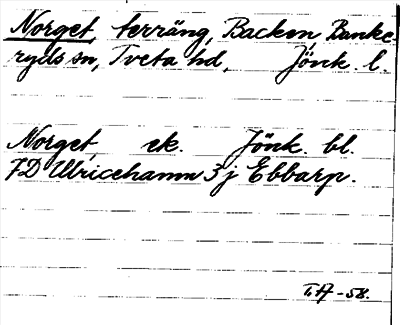 Norget, terräng, Backen, Banke-
ryds sn, Tveta hd, Jönk. l.
Norget, ek. Jönk. bl.
7D Ulricehamn 3j Ebbarp.
T.H -58.